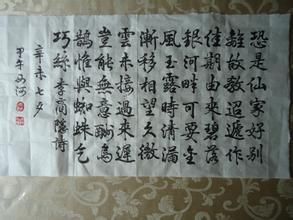 恐是仙家好別
離故教迢遞作
佳期由來碧落
銀河畔可要金
風玉露時清漏
漸移相望久微
雲未接過來遲
豈能無意酬烏
鵲惟與蜘蛛乞
巧絲 李商隱詩
辛未七夕
甲午